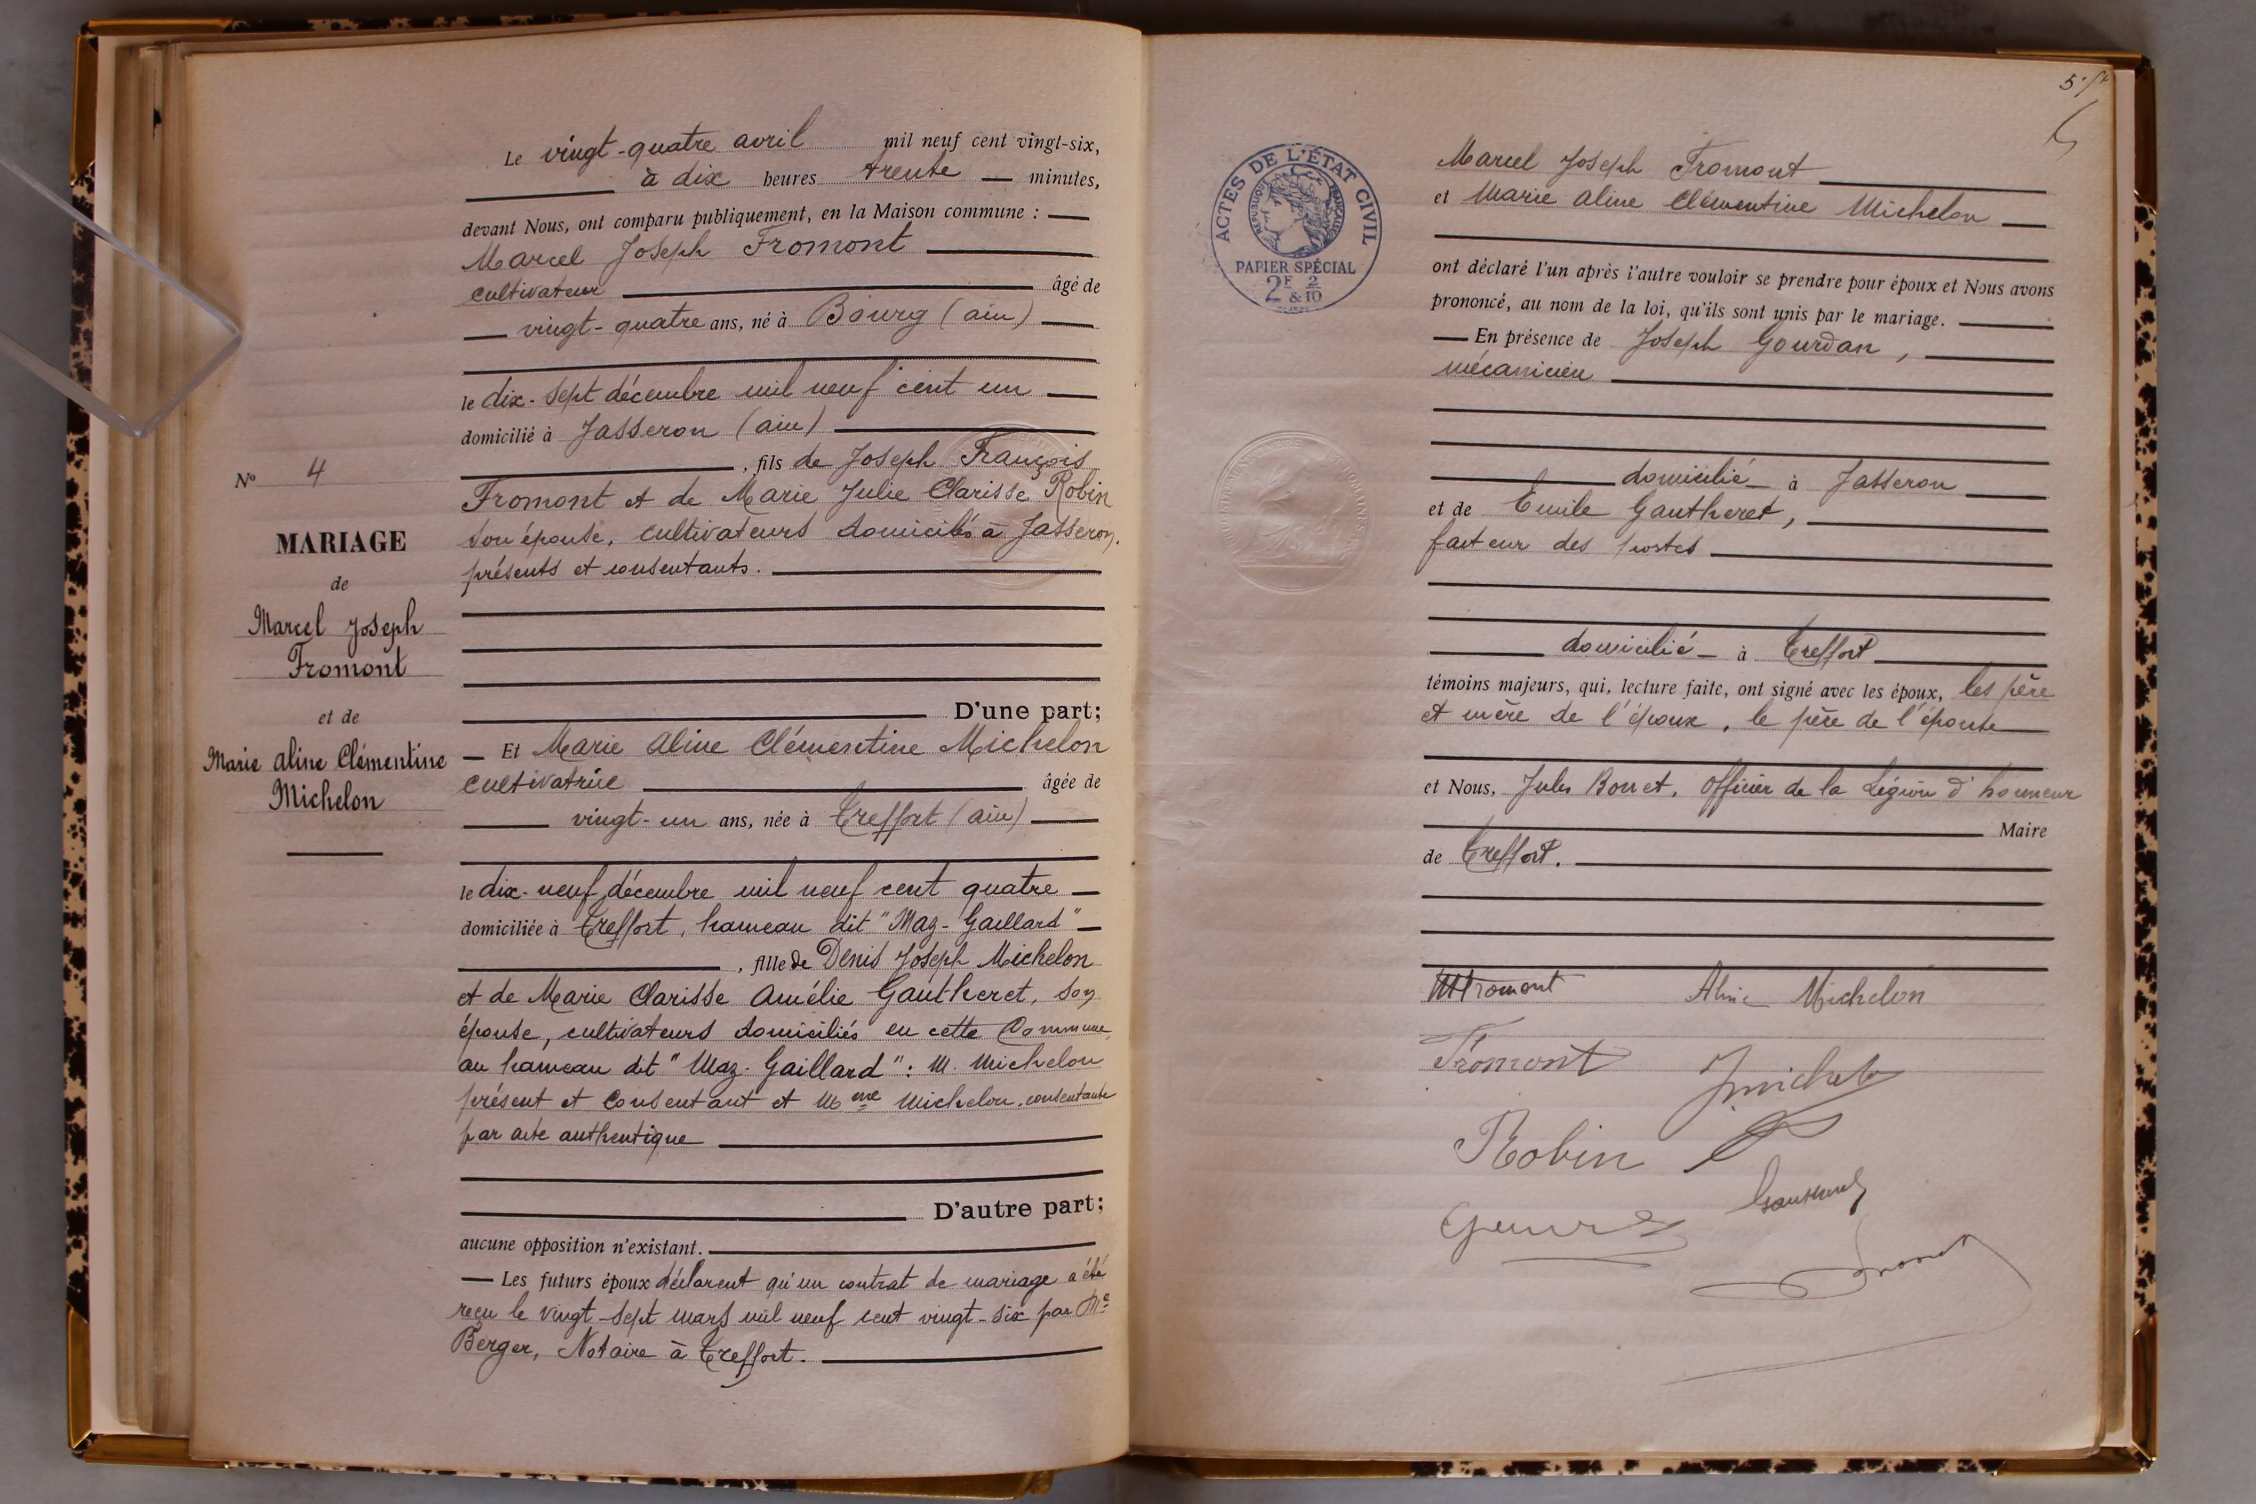 N° 4
MARIAGE
de
Marcel Joseph
Fromont
et de
Marie Aline Clémentine
Michelon
Le vingt-quatre avril mil neuf cent vingt-six,
à dix heures trente minutes,
devant Nous, ont comparu publiquement, en la Maison commune :
Marcel Joseph Fromont
cultivateur âgé de
vingt-quatre ans, né à Bourg (Ain)
le dix-sept décembre mil neuf cent un
domicilié à Jasseron (Ain)
, fils de Joseph François
Fromont et de Marie Julie Clarisse Robin
son épouse, cultivateurs domiciliés à Jasseron,
présents et consentants.
D'une part;
Et Marie Aline Clémentine Michelon
cultivatrice âgée de
vingt-un ans, née à Treffort (Ain)
le dix-neuf décembre mil neuf cent quatre
domiciliée à Treffort, hameau dit "Maz-Gaillard"
, fille de Denis Joseph Michelon
et de Marie Clarisse Amélie Gautheret, son
épouse, cultivateurs domiciliés en cette Commune,
au hameau dit "Maz-Gaillard": M. Michelon
présent et consentant et Mme Michelon, consentante
par acte authentique
D'autre part;
aucune opposition n'existant.
Les futurs époux déclarent qu'un contrat de mariage a été
reçu le vingt-sept mars mil neuf cent vingt-six par Me
Berger, Notaire à Treffort.
5
ACTES DE L'ÉTAT CIVIL
RÉPUBLIQUE FRANÇAISE
PAPIER SPÉCIAL
2F & 2/10
Marcel Joseph Fromont
et Marie Aline Clémentine Michelon
ont déclaré l'un après l'autre vouloir se prendre pour époux et Nous avons
prononcé, au nom de la loi, qu'ils sont unis par le mariage.
En présence de Joseph Gourdan,
mécanicien
domicilié à Jasseron
et de Emile Gautheret,
facteur des postes
domicilié à Treffort
témoins majeurs, qui, lecture faite, ont signé avec les époux, les père
et mère de l'époux, le père de l'épouse
et Nous, Jules Bonnet, Officier de la Légion d'honneur
Maire
de Treffort.
M Fromont Aline Michelon
Fromont J Michelon
Robin
Gautheret